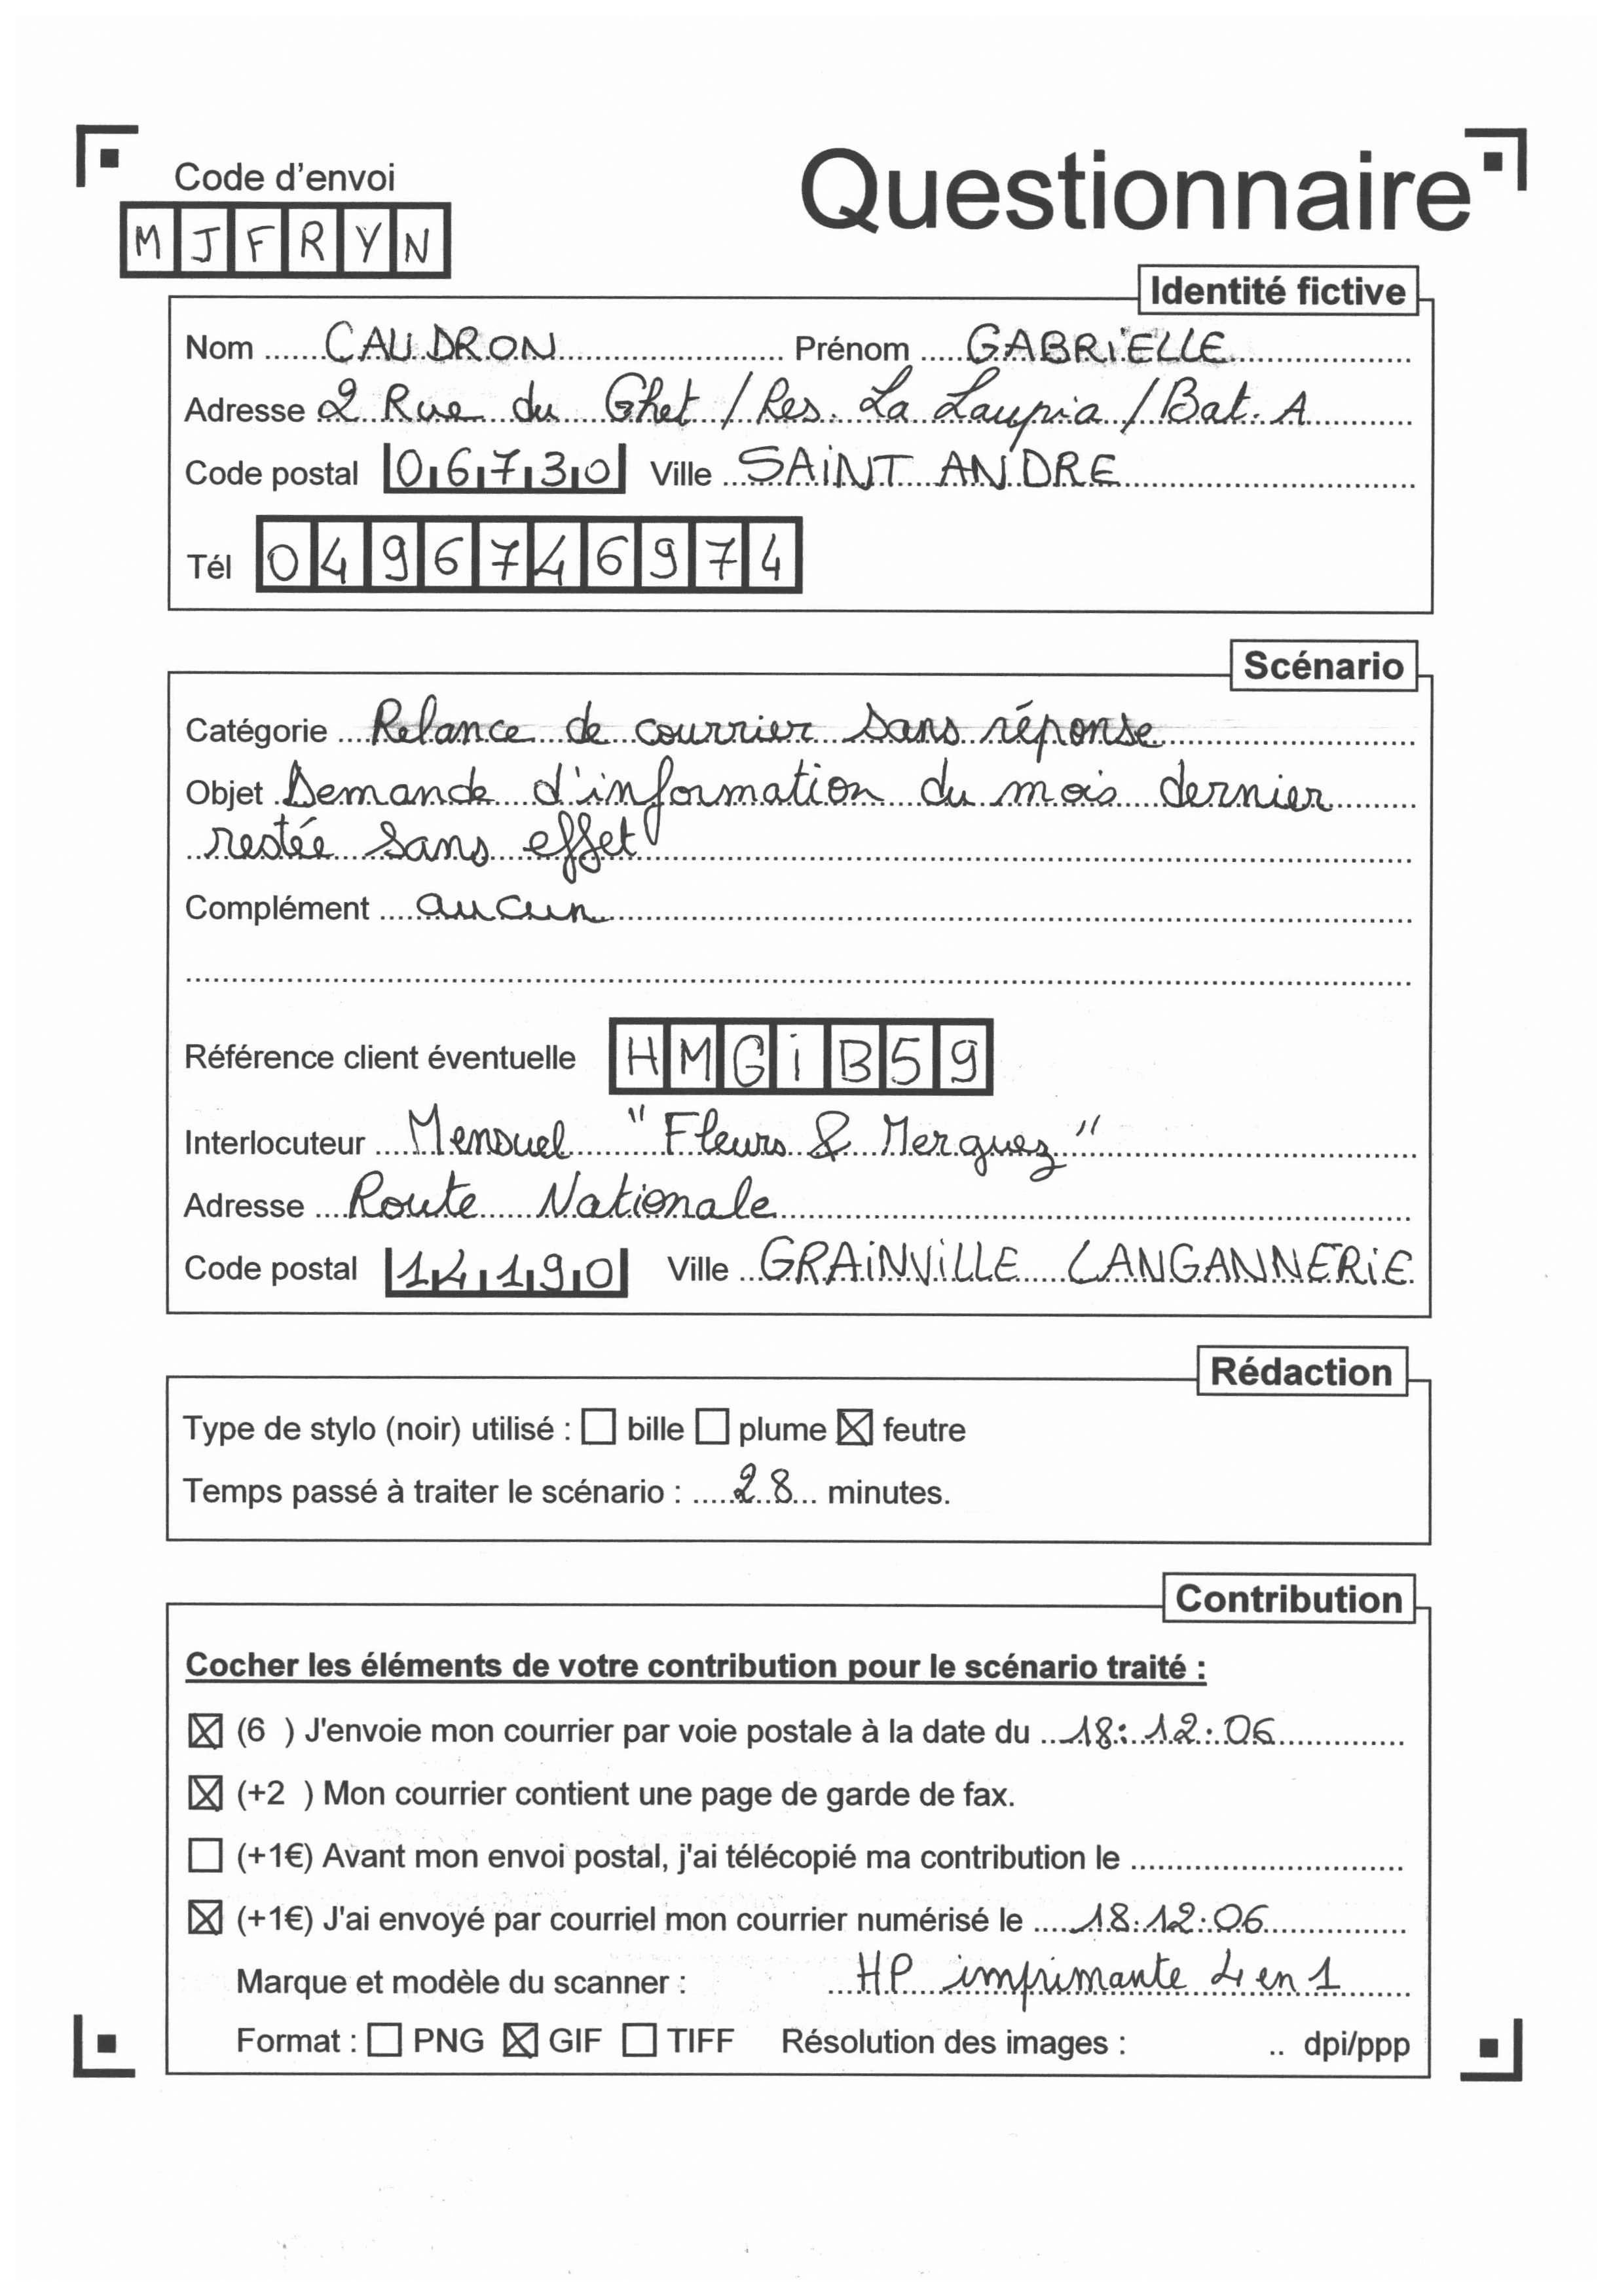 Code d'envoi
Questionnaire
MJFRYN
Identité fictive
Nom CAUDRON Prénom GABRiELLE
Adresse 2 Rue du Ghet / Res. La Laupia / Bat. A
Code postal 06730 Ville SAiNT ANDRE
Tél 0496746974
Scénario
Catégorie Relance de courrier sans réponse
Objet Demande d'information du mois dernier
restée sans effet
Complément aucun
Référence client éventuelle HMGiB59
Interlocuteur Mensuel "Fleurs & Merguez"
Adresse Route Nationale
Code postal 14190 Ville GRAiNViLLE LANGANNERiE
Rédaction
Type de stylo (noir) utilisé : ☐ bille ☐ plume ☒ feutre
Temps passé à traiter le scénario : 28 minutes.
Contribution
Cocher les éléments de votre contribution pour le scénario traité :
☒ (6 ) J'envoie mon courrier par voie postale à la date du 18:12:06
☒ (+2 ) Mon courrier contient une page de garde de fax.
☐ (+1€) Avant mon envoi postal, j'ai télécopié ma contribution le
☒ (+1€) J'ai envoyé par courriel mon courrier numérisé le 18:12:06
Marque et modèle du scanner : HP imprimante 4 en 1
Format : ☐ PNG ☒ GIF ☐ TIFF Résolution des images : .. dpi/ppp